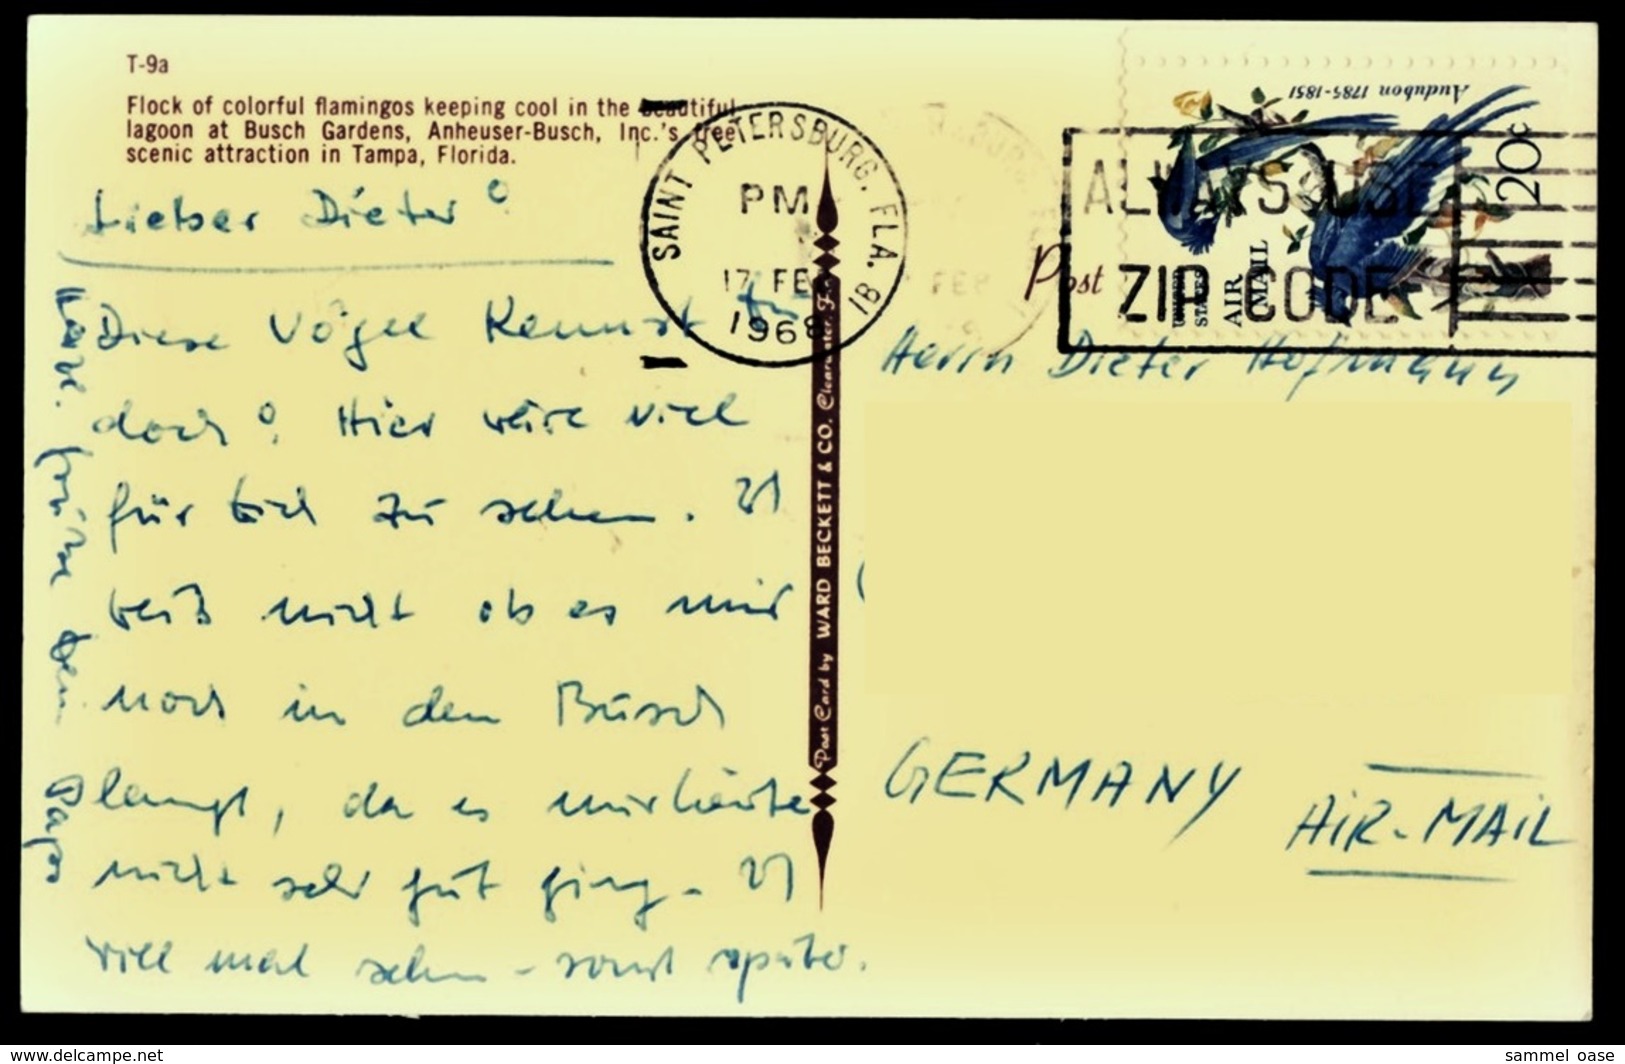 T-9a
Flock of colorful flamingos keeping cool in the beautiful
lagoon at Busch Gardens, Anheuser-Busch, Inc.'s free
scenic attraction in Tampa, Florida.
Lieber Dieter!
Diese Vögel Kennst Du
doch? Hier wäre viel
für Dich zu sehen. Ich
weiß nicht ob es mir
noch in den Busch
langt, da es mir heute
nicht sehr gut ging. Ich
will mal sehen - sonst später.
Herzl. Grüße Dein
Papa
SAINT PETERSBURG, FLA. 1B
PM
17 FEB
1968
Post Card by WARD BECKETT & CO. Clearwater, Fla.
Post
ALWAYS USE
ZIP CODE
Audubon 1785-1851
20c
UNITED
STATES
AIR
MAIL
Herrn Dieter Hofmann
GERMANY
AIR-MAIL
sammel_oase
www.delcampe.net